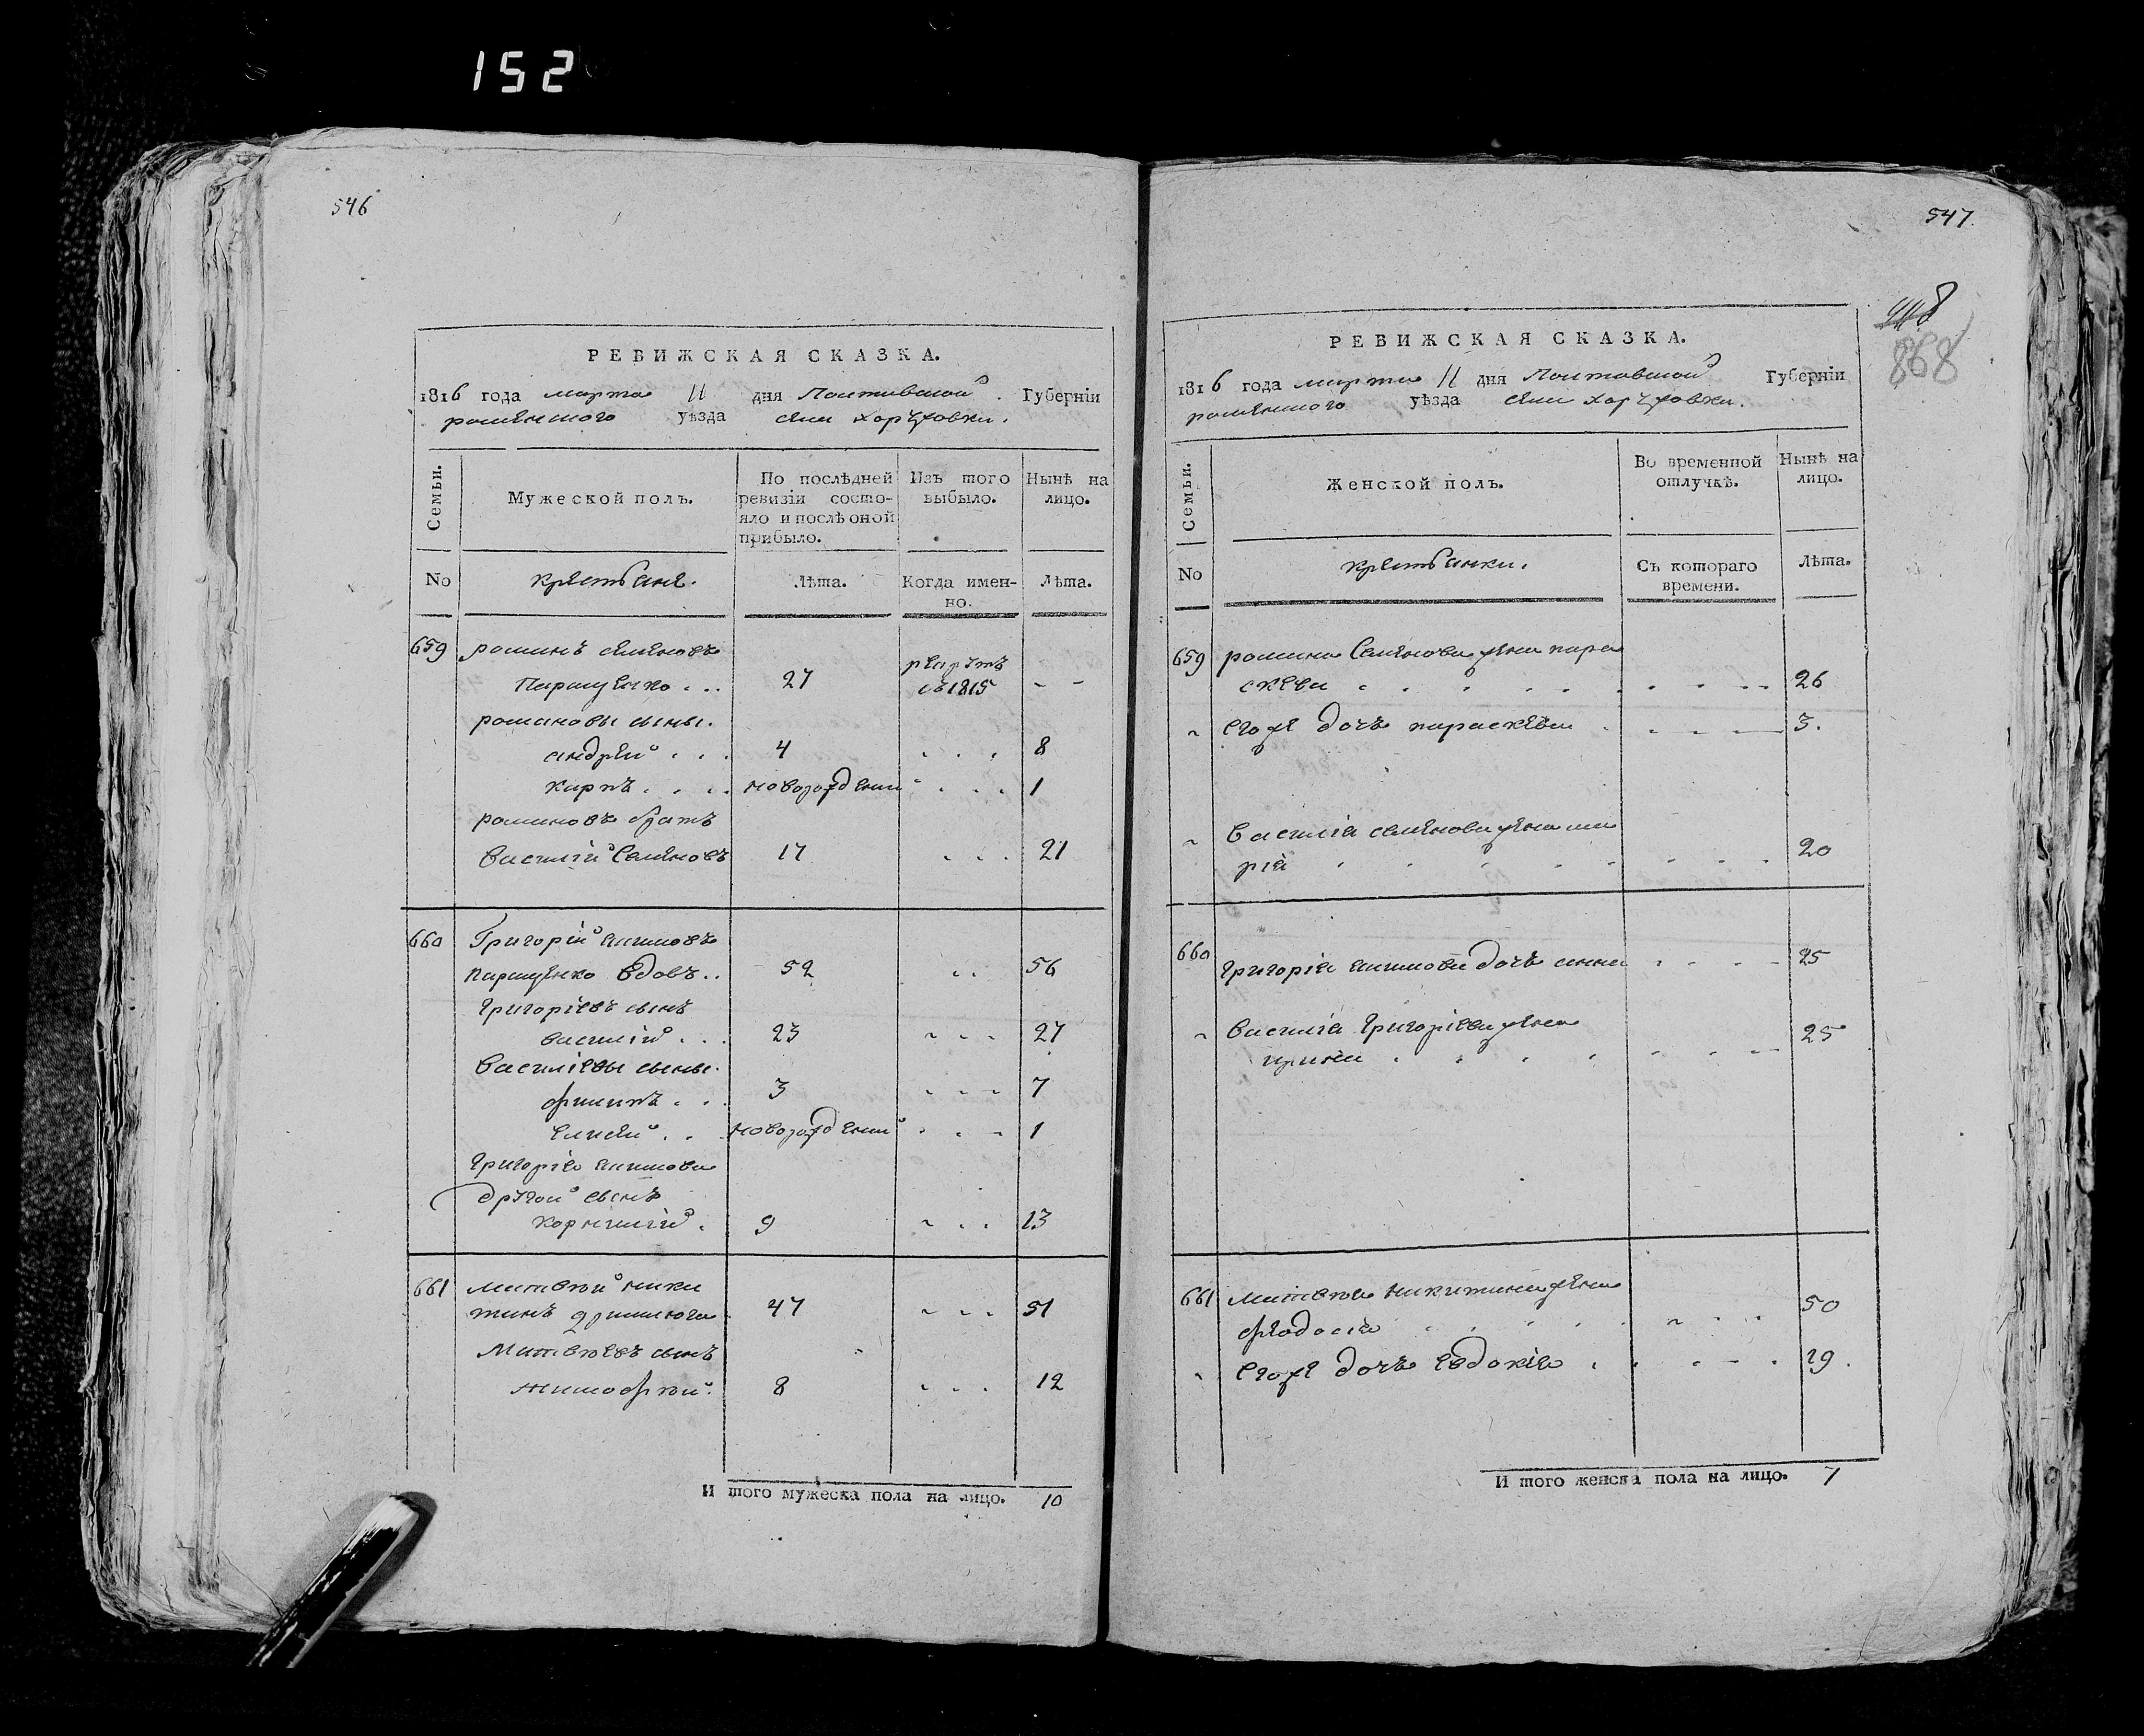 152
546
РЕВИЖСКАЯ СКАЗКА.
1816 года марта 11 дня Полтавской Губернїи
роменского уѣзда села хоружовки.
Семьи.
Мужеской полъ.
По послѣдней ревизїи состояло и послѣ оной прибыло.
Изъ того выбыло.
Нынѣ на лицо.
No
крестьяне.
Лѣта.
Когда именно.
Лѣта.
659 романъ семеновъ
27 рекрутъ в 1815 - -
романовы сыны.
андрей . . . 4 . . . 8
карпъ . . . новорожденний . . . 1
романовъ братъ
василїй Семеновъ 17 . . . 21
660 Григорїй
вдовъ . . 52 . . 56
григорїевъ сынъ
василїй . . 23 - - - 27
Василїевы сыны.
филипъ . . 3 - - - 7
елисей . . новорожденний . . - 1
григорїя
другой сынъ
корнилїй . 9 - . . 13
661 матвѣй ники
тинъ 47 - - - 51
Матвѣевъ сынъ
тимофѣй . 8 . . . 12
И того мужеска пола на лицо. 10
547
868
РЕВИЖСКАЯ СКАЗКА.
1816 года марта 11 дня Полтавской Губернїи
роменского уѣзда села хоружовки.
Семьи.
Женской полъ.
Во временной отлучкѣ.
Нынѣ на лицо.
No
крестьянки.
Съ котораго времени.
Лѣта.
659 романа Семенова жена пара
скева . . . . . . 26
- Его же дочь параскева . - - - - 3.
- Василїя семенова жена ма
рїя . . . . . . 20
660 григорїя дочь анна . - - - 25
- василїя григорїева жена
ирина . . . . . . 25
661 матвѣя никитина жена
феодосїя . . . . . . 50
- Его же дочь евдокїя . . . . . 19.
И того женска пола на лицо. 7